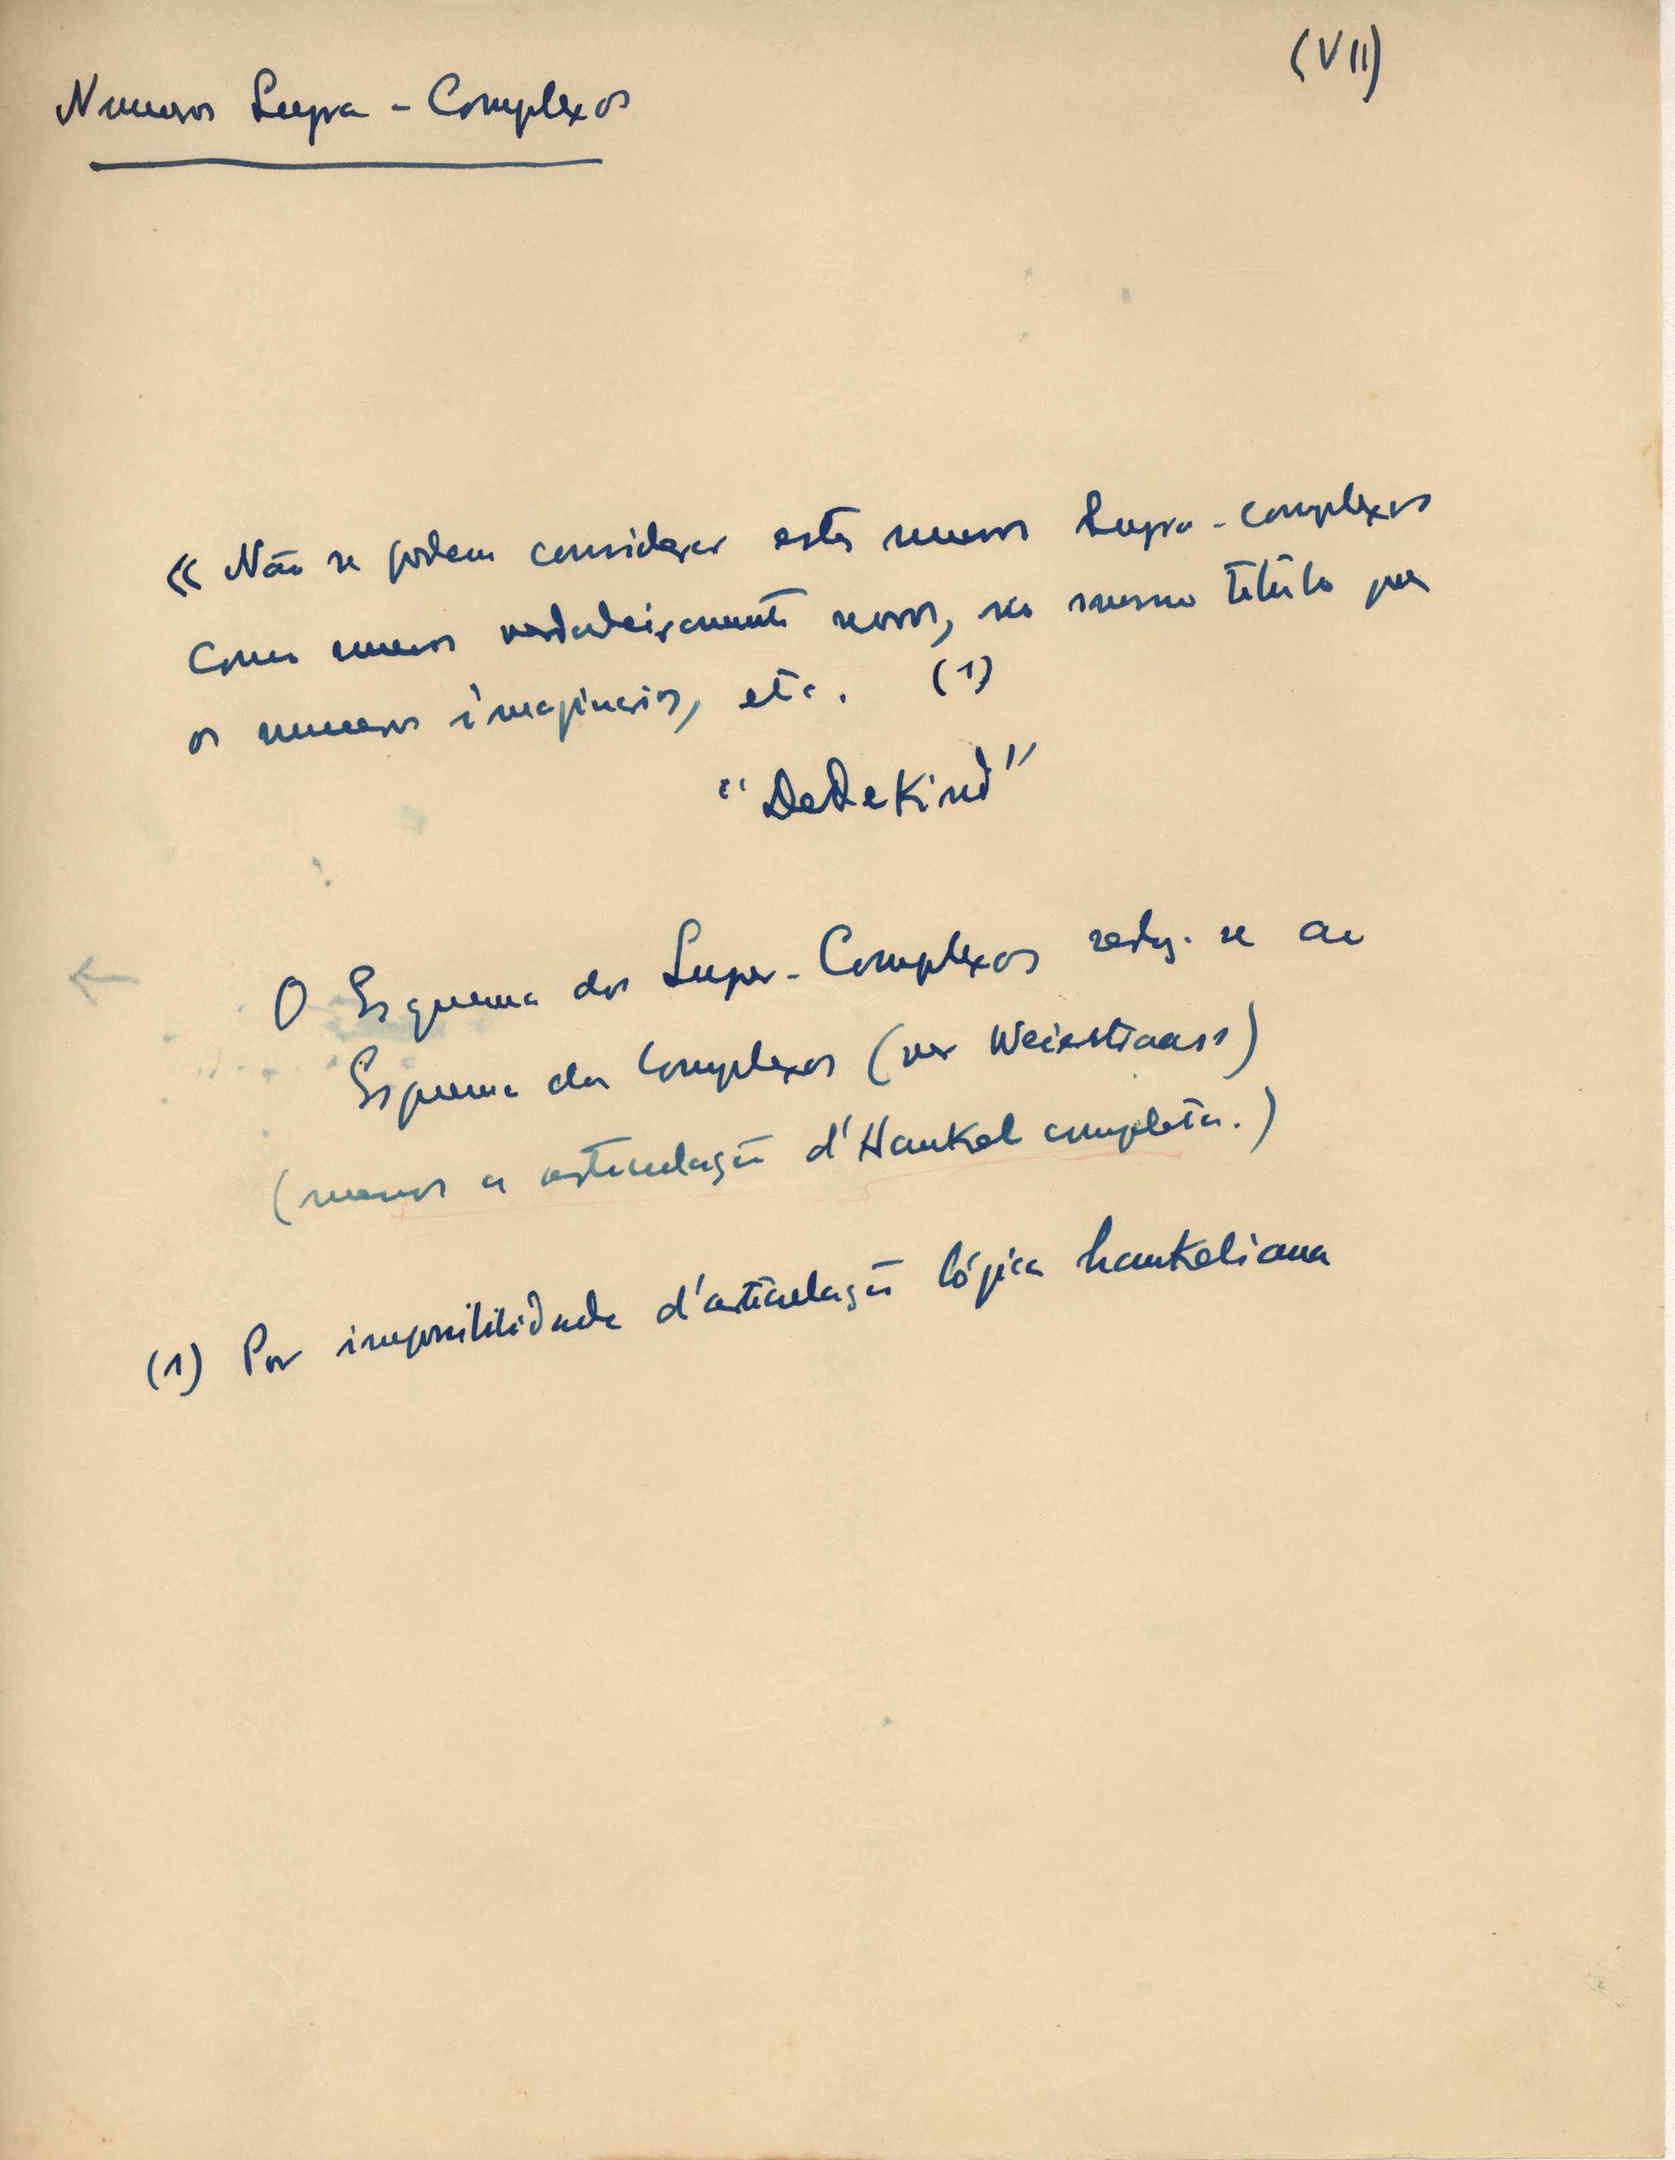 (VII)
Numeros Supra-Complexos
« Não se podem considerar estes numeros Supra-complexos
como numeros verdadeiramente novos, no mesmo titúlo que
os numeros imaginarios, etc. (1)
"Dedekind"
O Esquema dos Super-Complexos reduz-se ao
Esquema dos Complexos (ver Weierstraass)
(menos a articulação d'Hankel completa.)
(1) Por impossibilidade d'articulação lógica hankeliana